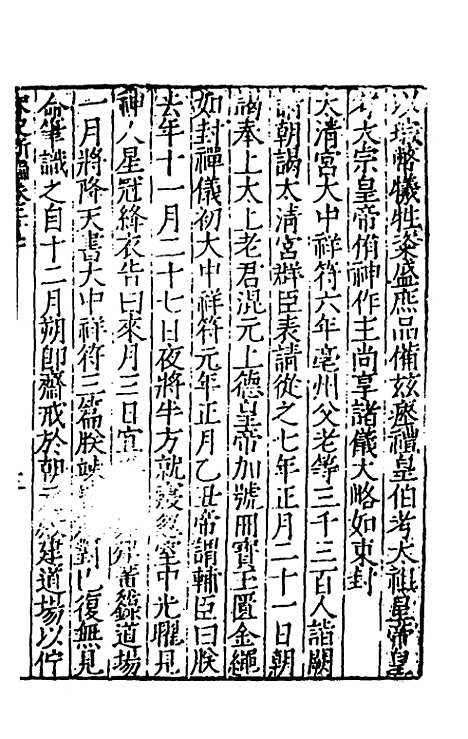 幣犧牲粢盛庶品備兹瘞禮皇伯考太祖皇帝皇
考太宗皇帝侑神作主尚享諸儀大略如東封
太清宮大中祥符六年亳州父老等三千三百人詣闕
請朝謁太清宮群臣表請從之七年正月二十一日朝
謁奉上太上老君混元上德皇帝加號冊寶玉匱金繩
如封禪儀初大中祥符元年正月乙丑帝謂輔臣曰朕
去年十一月二十七日夜將半方就寢室中光曜見
神人星冠絳衣告曰來月三日宜黃籙道場
一月將降天書大中祥符三篇朕對已復無見
命筆識之自十二月朔即齋戒於朝建道場以佇